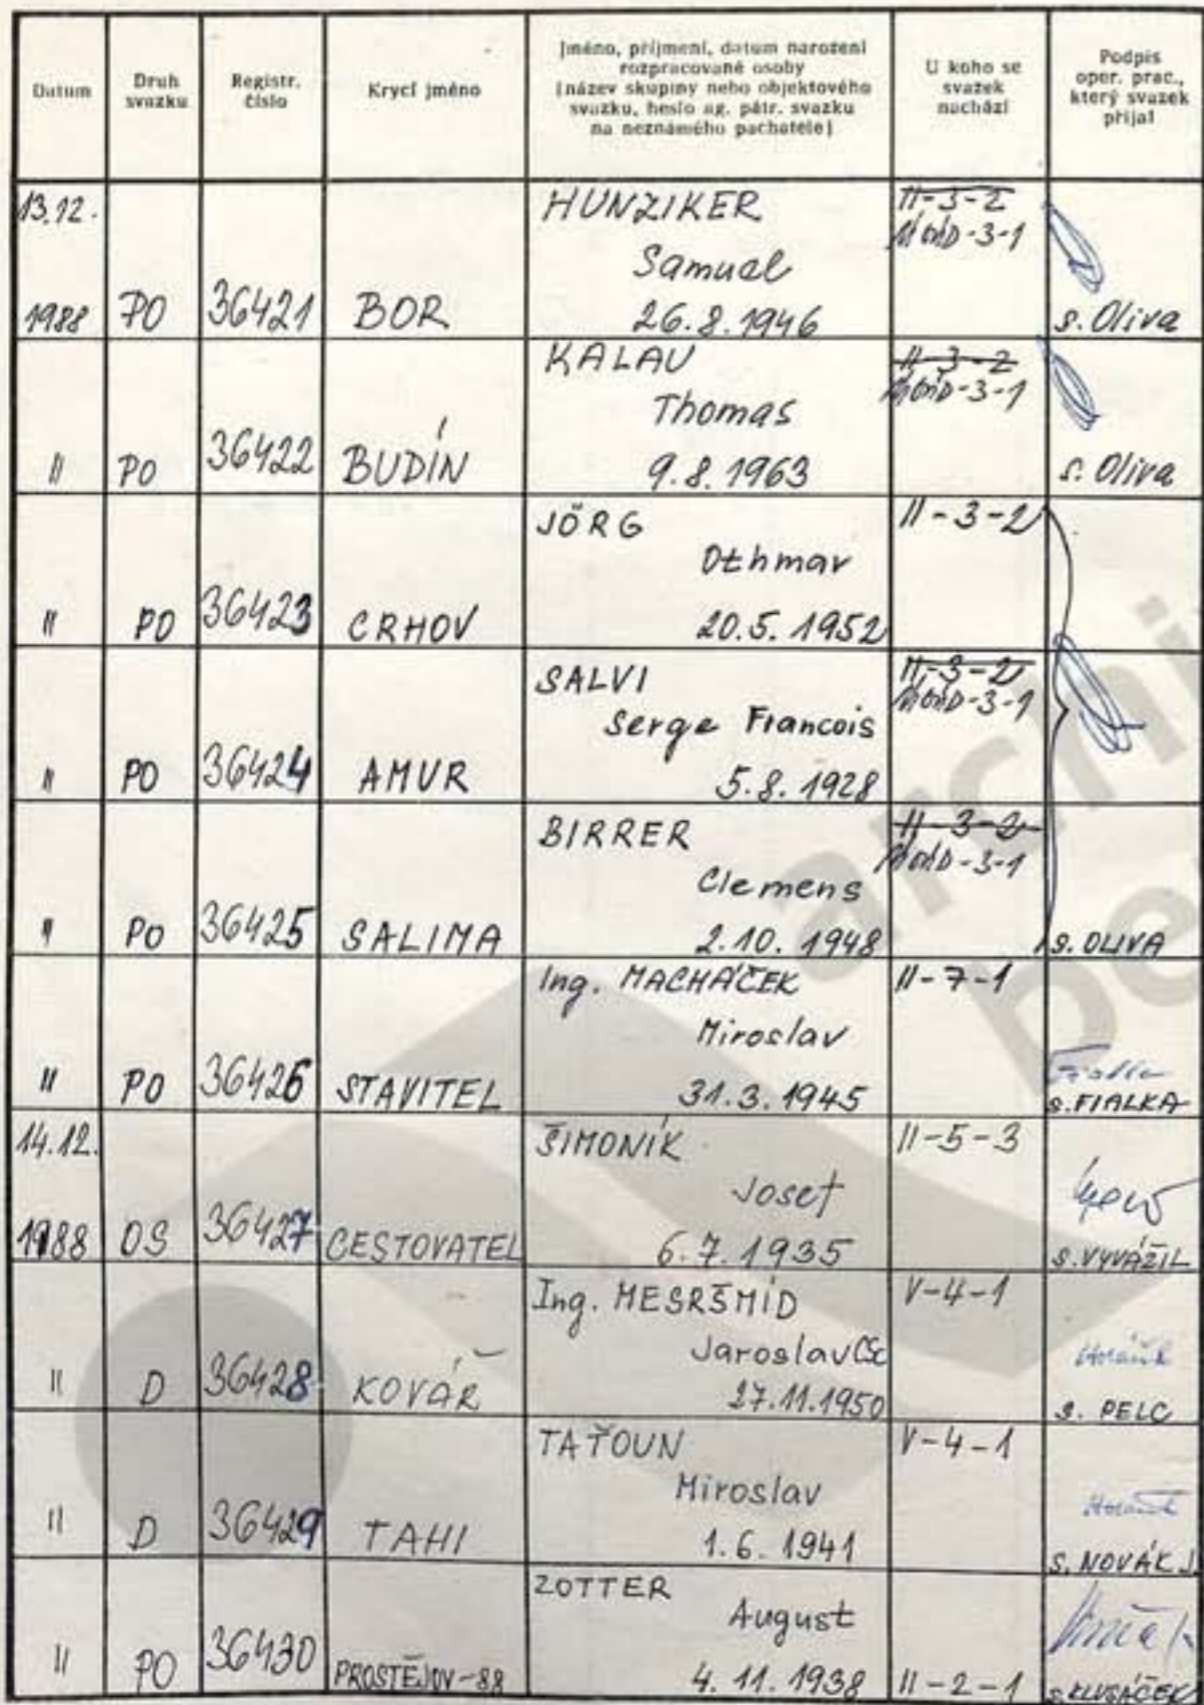 Datum
Druh
svazku
Registr.
číslo
Krycí jméno
Jméno, příjmení, datum narození
rozpracované osoby
(název skupiny nebo objektového
svazku, heslo ag. pátr. svazku
na neznámého pachatele)
U koho se
svazek
nachází
Podpis
oper. prac.,
který svazek
přijal
13.12.
1988 PO 36421 BOR
HUNZIKER
Samuel
26.8.1946
II-3-2
-3-1
s. Oliva
" PO 36422 BUDÍN
KALAU
Thomas
9.8.1963
II-3-2
-3-1
s. Oliva
" PO 36423 CRHOV
JÖRG
Othmar
20.5.1952
II-3-2
" PO 36424 AMUR
SALVI
Serge Francois
5.8.1928
II-3-2
-3-1
" PO 36425 SALIMA
BIRRER
Clemens
2.10.1948
II-3-2
-3-1
s. OLIVA
" PO 36426 STAVITEL
Ing. MACHÁČEK
Miroslav
31.3.1945
II-7-1
Fialka
s. FIALKA
14.12.
1988 OS 36427 CESTOVATEL
ŠIMONÍK
Josef
6.7.1935
II-5-3
s. VYVÁŽIL
" D 36428 KOVÁŘ
Ing. MESRŠMÍD
Jaroslav CSc
27.11.1950
V-4-1
s. PELC
" D 36429 TAHI
TAŤOUN
Miroslav
1.6.1941
V-4-1
s. NOVÁK J.
" PO 36430 PROSTĚJOV-88
ZOTTER
August
4.11.1938
II-2-1
s. KLUSÁČEK